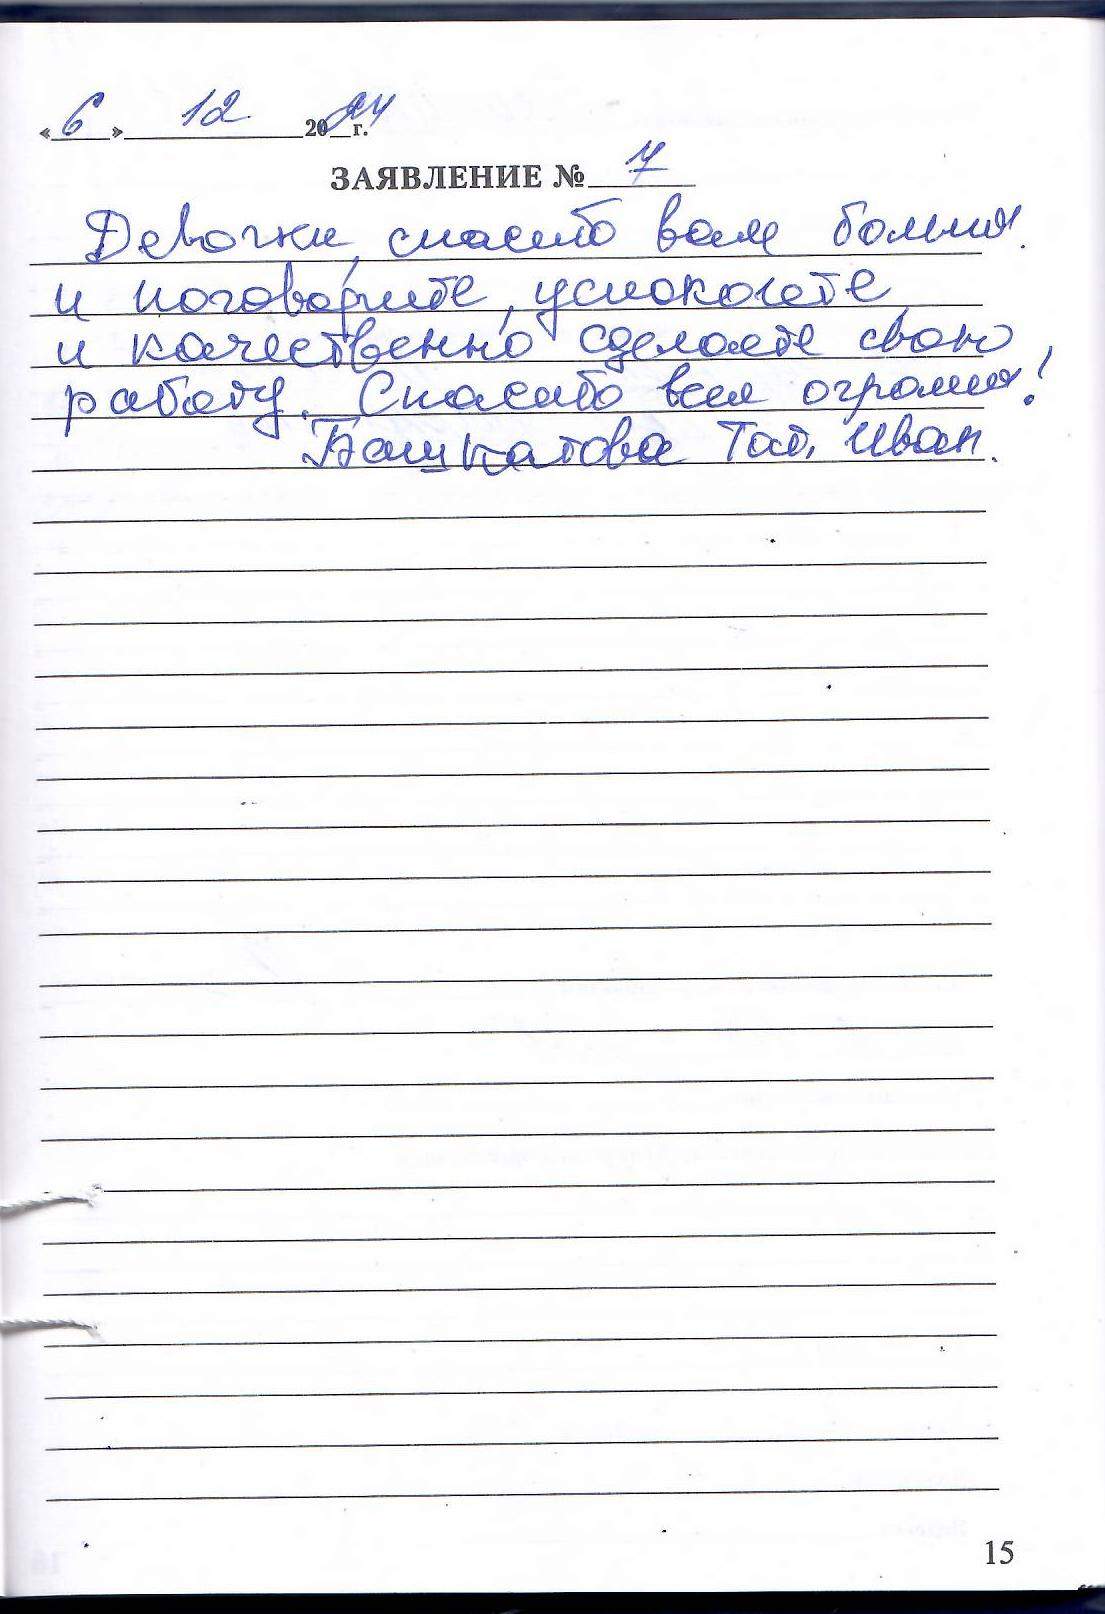 «6» 12 2024 г.
ЗАЯВЛЕНИЕ № 7
Девочки, спасибо вам большия.
и поговорите, успокоете
и качественно сделаете свою
работу. Спасибо вам огромия!
Башкатова Тат. Иван.
15